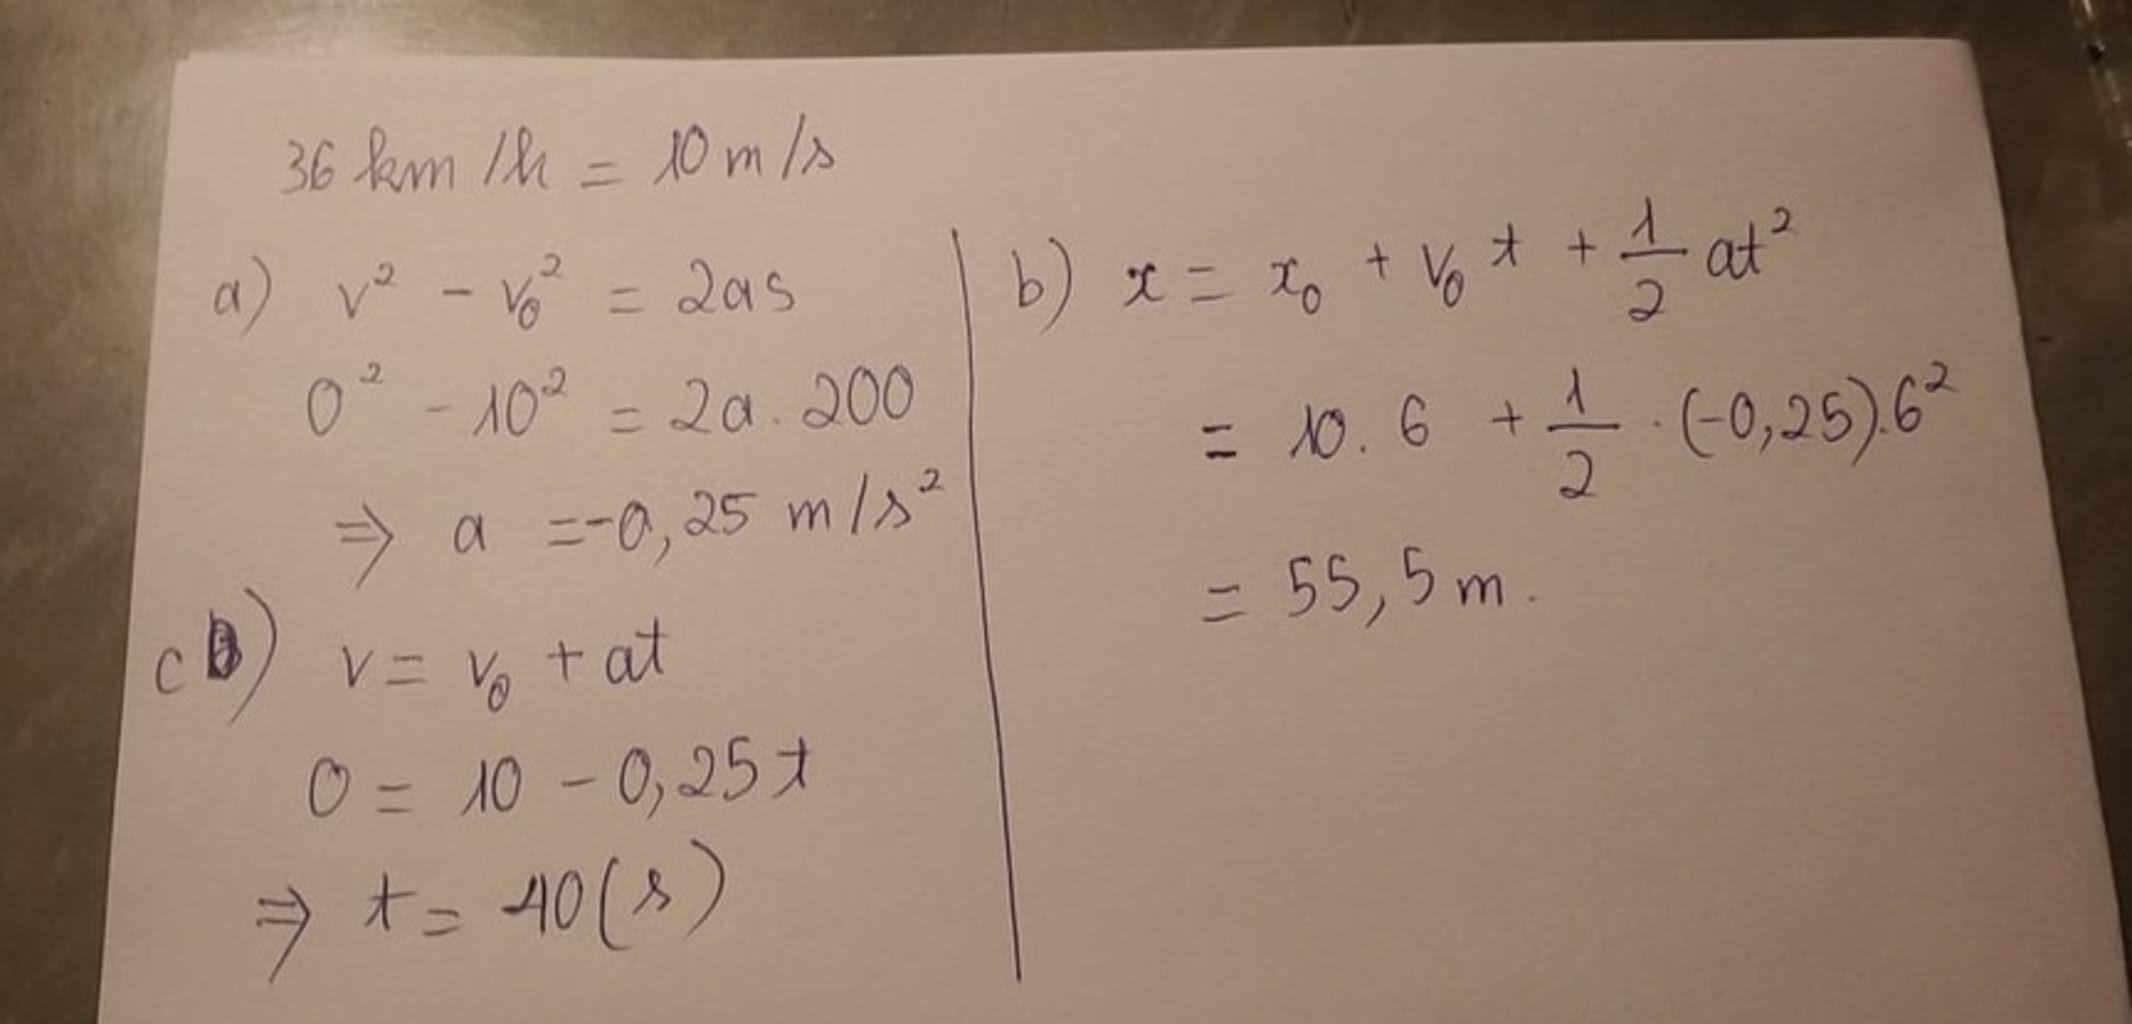 36 km/h = 10 m/s
a) v² - v₀² = 2as
0² - 10² = 2a . 200
⇒ a = -0,25 m/s²
c) v = v₀ + at
0 = 10 - 0,25t
⇒ t = 40(s)
b) x = x₀ + v₀t + 1/2 at²
= 10 . 6 + 1/2 . (-0,25).6²
= 55,5 m.